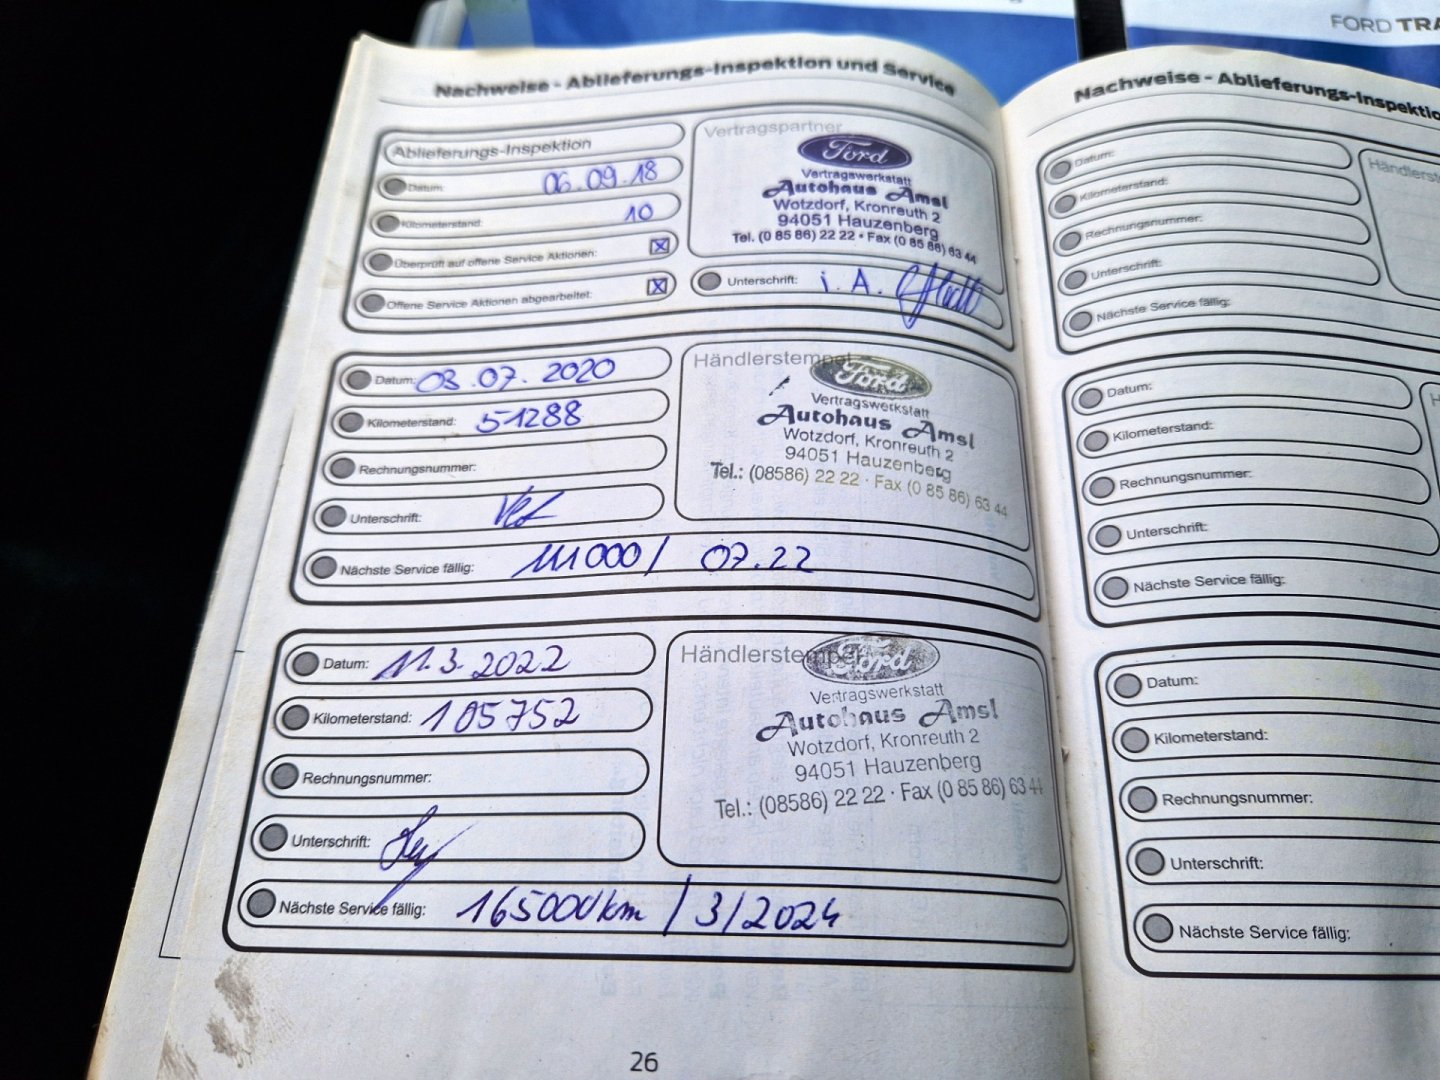 FORD TRA
Nachweise - Ablieferungs-Inspektion und Service
Ablieferungs-Inspektion
Datum: 06.09.18
Kilometerstand: 10
Überprüft auf offene Service Aktionen: X
Offene Service Aktionen abgearbeitet: X
Vertragspartner
Ford
Vertragswerkstatt
Autohaus Amsl
Wotzdorf, Kronreuth 2
94051 Hauzenberg
Tel. (0 85 86) 22 22 • Fax (0 85 86) 63 44
Unterschrift: i. A.
Datum: 03.07.2020
Kilometerstand: 51288
Rechnungsnummer:
Unterschrift:
Nächste Service fällig: 111000/ 07.22
Händlerstempel
Ford
Vertragswerkstatt
Autohaus Amsl
Wotzdorf, Kronreuth 2
94051 Hauzenberg
Tel.: (08586) 22 22 · Fax (0 85 86) 63 44
Datum: 11.3.2022
Kilometerstand: 105752
Rechnungsnummer:
Unterschrift:
Nächste Service fällig: 165000km / 3/2024
Händlerstempel
Ford
Vertragswerkstatt
Autohaus Amsl
Wotzdorf, Kronreuth 2
94051 Hauzenberg
Tel.: (08586) 22 22 · Fax (0 85 86) 63 44
26
Nachweise - Ablieferungs-Inspektio
Datum:
Kilometerstand:
Rechnungsnummer:
Unterschrift:
Nächste Service fällig:
Händlerst
Datum:
Kilometerstand:
Rechnungsnummer:
Unterschrift:
Nächste Service fällig:
H
Datum:
Kilometerstand:
Rechnungsnummer:
Unterschrift:
Nächste Service fällig: